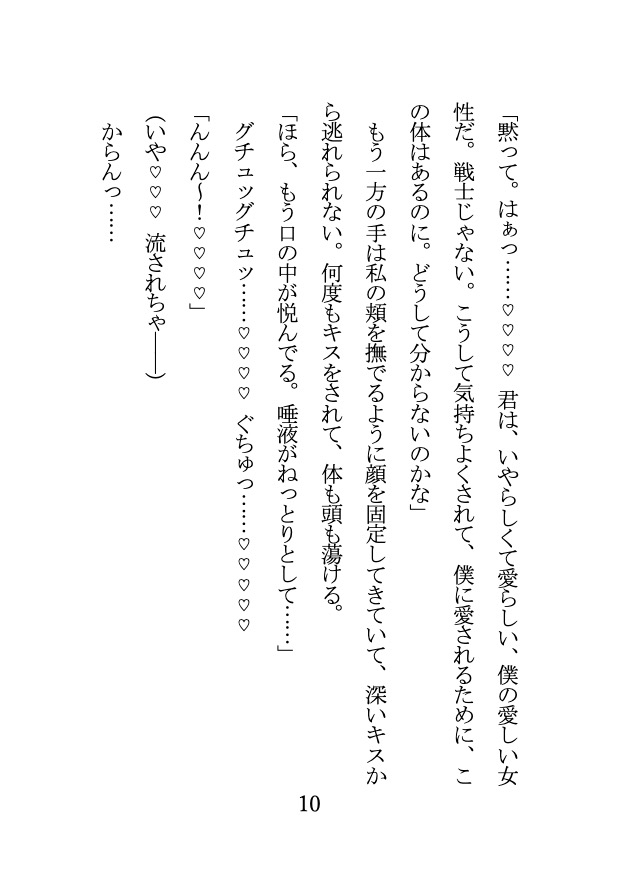 「黙って。はぁっ……♡♡♡♡ 君は、いやらしくて愛らしい、僕の愛しい女
性だ。戦士じゃない。こうして気持ちよくされて、僕に愛されるために、こ
の体はあるのに。どうして分からないのかな」
もう一方の手は私の頬を撫でるように顔を固定してきていて、深いキスか
ら逃れられない。何度もキスをされて、体も頭も蕩ける。
「ほら、もう口の中が悦んでる。唾液がねっとりとして……」
グチュッグチュッ……♡♡♡♡ ぐちゅっ……♡♡♡♡♡
「んんん～！♡♡♡♡」
（いや♡♡♡ 流されちゃ――）
からんっ……
10